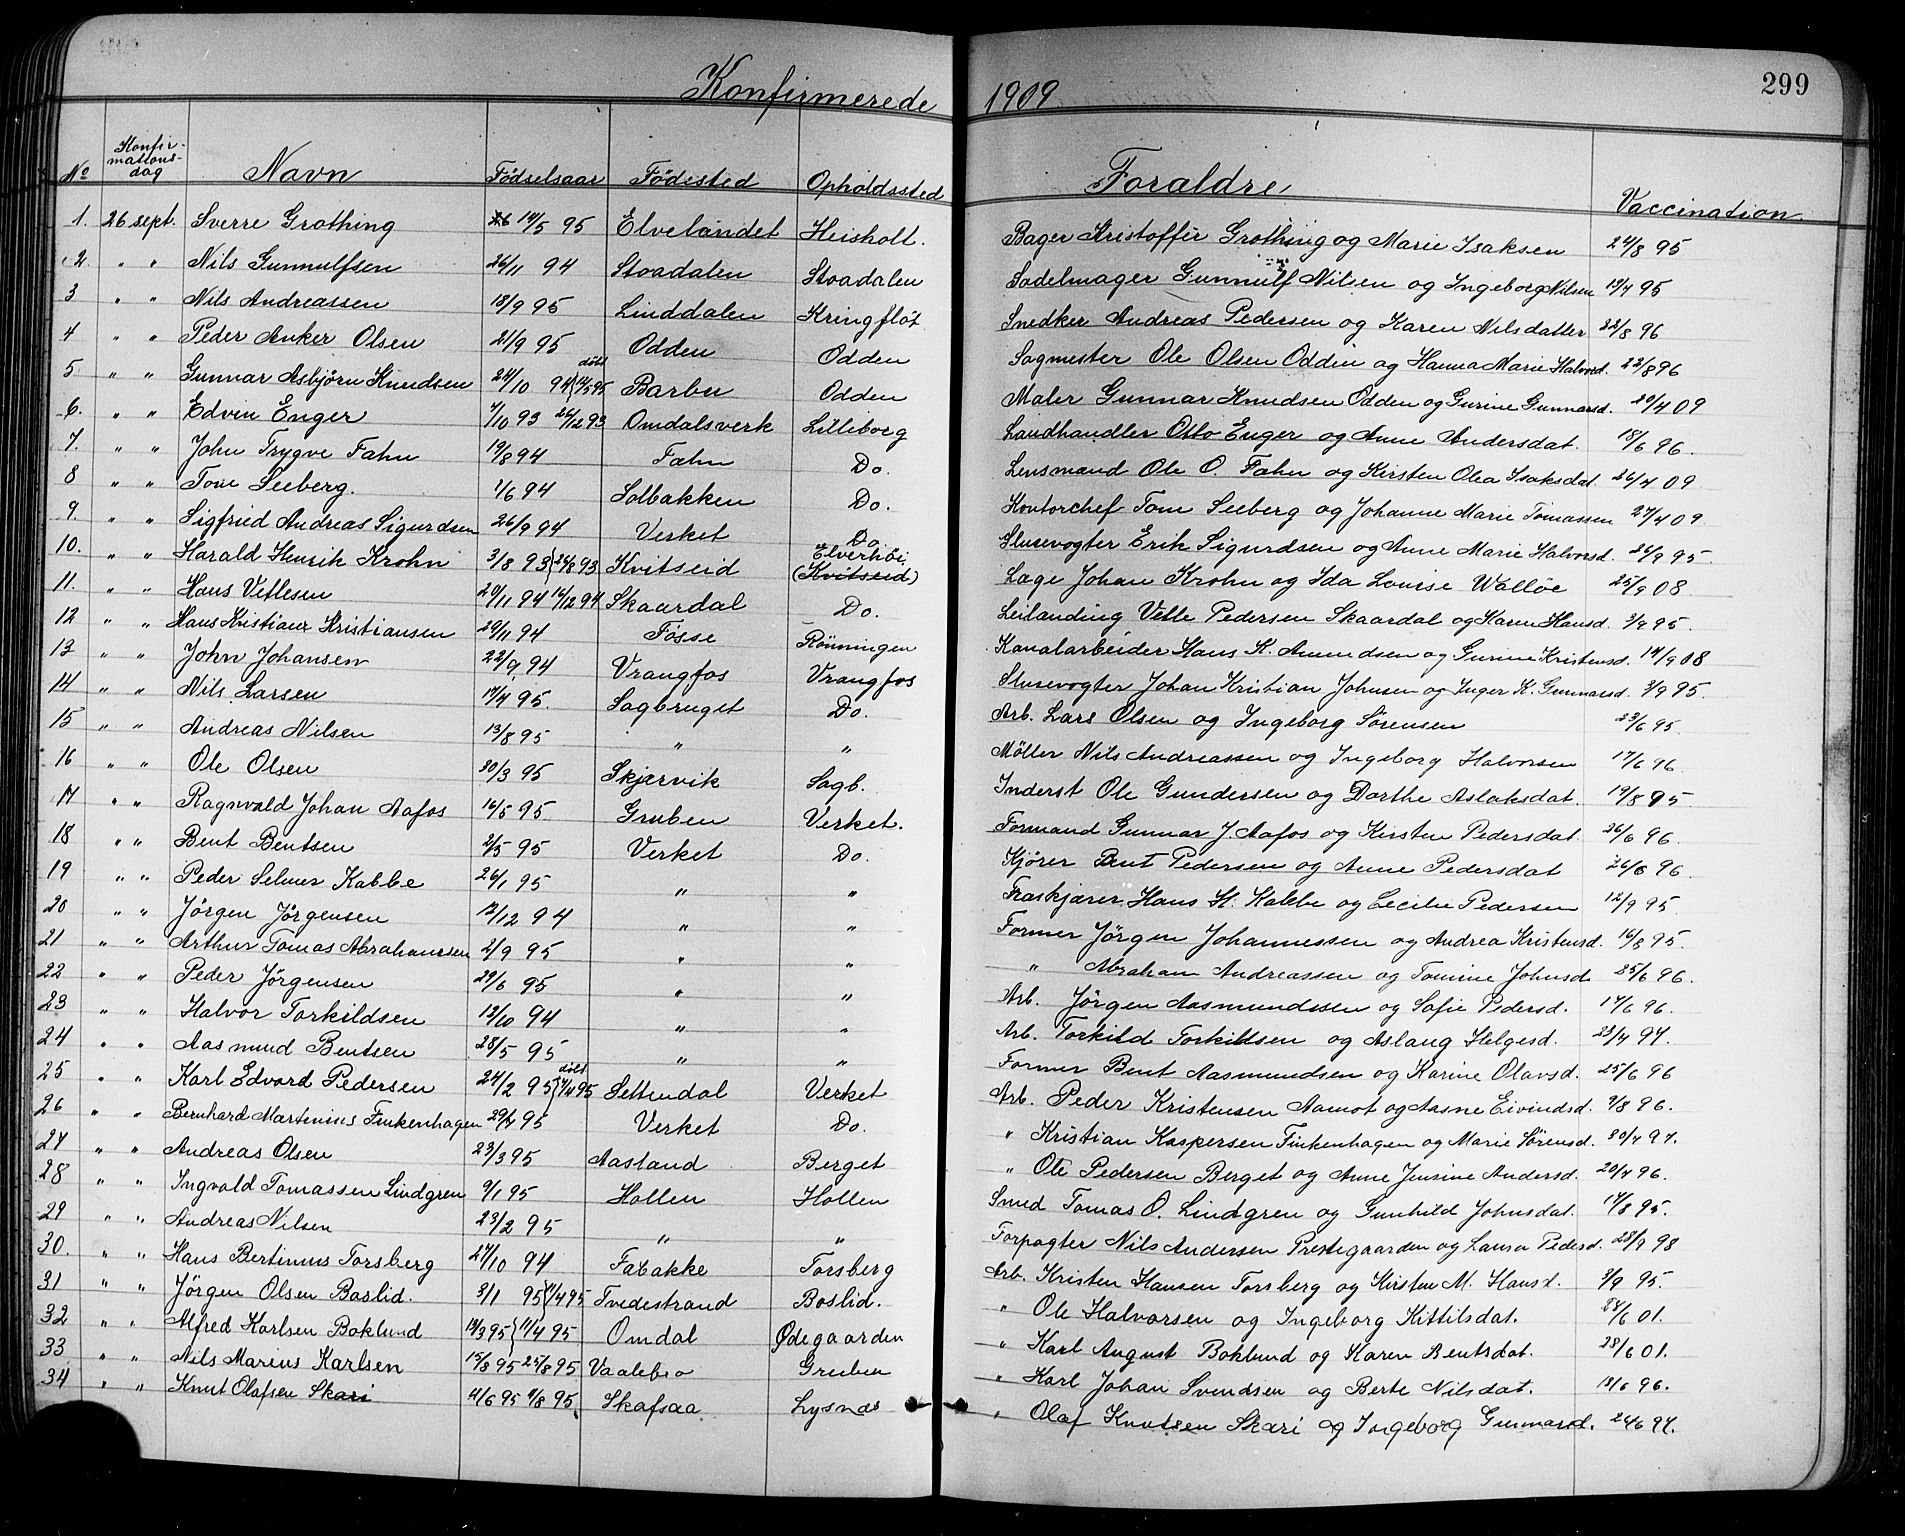 Konfirmerede 1909. 299
No Konfirmationsdag Navn Födselsaar Födested Opholdssted Foraldre Vaccination
1. 26 sept. Sverre Grothing 14/5 95 Elvelandet Heisholt. Bager Kristoffer Grothing og Marie Isaksen 24/8 95
2. " " Nils Gunnulfsen 26/11 94 Stoadalen Stoadalen Sadelmager Gunnulf Nilsen og Ingeborg Nilsen 19/4 95
3 " " Nils Andreassen 18/9 95 Linddalen Kringflöt Snedker Andreas Pedersen og Karen Nilsdatter 22/8 96
4 " " Peder Anker Olsen 21/9 95 Odden Odden Sagmester Ole Olsen Odden og Hanna Marie Halvsd. 22/8 96
5 " " Gunnar Asbjörn Knudsen 24/10 94 döbt 95 Barbu Odden Maler Gunnar Knudsen Odden og Gurine Gunnarsd. 20/4 09
6. " " Edvin Enger 7/10 93 26/12 93 Omdalsverk Lilleborg Landhandler Otto Enger og Anne Andersdat. 18/6 96.
7. " " John Trygve Fahn 19/8 94 Fæhn Do. Lensmand Ole O. Fæhn og Kirsten Olea Isaksdat. 26/4 09
8 " " Tom Seeberg. 1/6 94 Solbakken Do. Kontorchef Tom Seeberg og Johanne Marie Tomassen 27/4 09
9. " " Sigfried Andreas Sigurdsen 26/9 94 Verket Do. Slusevogter Erik Sigurdsen og Anne Marie Halvorsd. 26/9 95.
10. " " Harald Henrik Krohn 3/8 93 24/8 93 Kvitseid Elverhöi (Kvitseid) Læge Johan Krohn og Ida Louise Walløe 25/9 08
11. " " Hans Vetlesen 20/11 94 16/12 94 Skaardal Do. Leilanding Vetle Pedersen Skaardal og Karen Hansd. 3/9 95.
12 " " Hans Kristian Kristiansen 29/11 94 Fosse Rönningen Kanalarbeider Hans K. Amundsen og Gurine Kristensd. 14/9 08
13 " " John Johansen 22/9 94 Vrangfos Vrangfos Slusevogter Johan Kristian Johnsen og Inger K. Gunnarsd. 3/9 95.
14 " " Nils Larsen 17/4 95. Sagbruget Do. Arb. Lars Olsen og Ingeborg Sörensen 23/6 95.
15 " " Andreas Nilsen 13/8 95 " " Møller Nils Andreassen og Ingeborg Halvorsen 17/6 96.
16 " " Ole Olsen 30/3 95 Skjærvik Sagb. Inderst Ole Gundersen og Dorthe Aslaksdat. 19/8 95.
17 " " Ragnvald Johan Aafos 16/5 95 Gruben Verket. Formand Gunnar J. Aafos og Kirsten Pedersdat. 26/6 96.
18 " " Bent Bentsen 2/5 95 Verket Do. Kjörer Bent Pedersen og Anne Pedersdat 26/6 96
19 " " Peder Selmer Kabbe 26/1 95 " " Fraskjærer Hans H. Kabbe og Cecilie Pedersen 12/9 95.
20 " " Jörgen Jörgensen 12/12 94 " " Former Jörgen Johannessen og Andrea Kristensd. 16/8 95.
21 " " Arthur Tomas Abrahamsen 2/9 95 " " " Abraham Andreassen og Tomine Johnsd 25/6 96.
22 " " Peder Jörgensen 29/6 95 " " Arb. Jörgen Aasmundsen og Sofie Pedersd. 17/6 96.
23 " " Halvor Torkildsen 12/10 94 " " Arb. Torkild Torkildsen og Aslaug Helgesd. 23/4 97.
24 " " Aasmund Bentsen 28/5 95 " " Former Bent Aasmundsen og Karine Olavsd. 25/6 96
25 " " Karl Edvard Pedersen 24/2 95 döbt 7/4 95 Settendal Verket Arb. Peder Kristensen Aamot og Aasne Eivindsd. 9/8 96.
26 " " Bernhard Martinius Finkenhagen 29/4 95 Verket Do. " Kristian Kaspersen Finkenhagen og Marie Sörensd. 30/4 97.
27 " " Andreas Olsen 23/3 95 Aasland Berget " Ole Pedersen Berget og Anne Jensine Andersd. 20/4 96.
28 " " Ingvald Tomassen Lindgren 9/1 95 Hollen Hollen Smed Tomas O. Lindgren og Gunhild Johnsdat. 17/8 95.
29 " " Andreas Nilsen 23/2 95 " " Forpagter Nils Andersen Prestegaarden og Laura Pedersd. 28/9 98
30. " " Hans Bertinius Torsberg 27/10 94 Fabakke Torsberg Arb. Kristen Hansen Torsberg og Kirsten M. Hansd. 3/9 95.
31 " " Jörgen Olsen Baslid. 3/1 95 7/4 95 Tvedestrand Boslid. " Ole Halvorsen og Ingeborg Kittilsdat. 28/6 01.
32 " " Alfred Karlsen Boklund 14/3 95 11/4 95 Omdal Ødegaarden " Karl August Boklund og Karen Bentsdat. 28/6 01.
33 " " Nils Marius Karlsen 15/8 95 25/8 95 Vaalebro Gruben " Karl Johan Svendsen og Berte Nilsdat. 12/6 96.
34 " " Knut Olafsen Skari 11/6 95 4/8 95. Skafsaa Lysnæs " Olaf Knutsen Skari og Ingeborg Gunnarsd. 24/6 97.